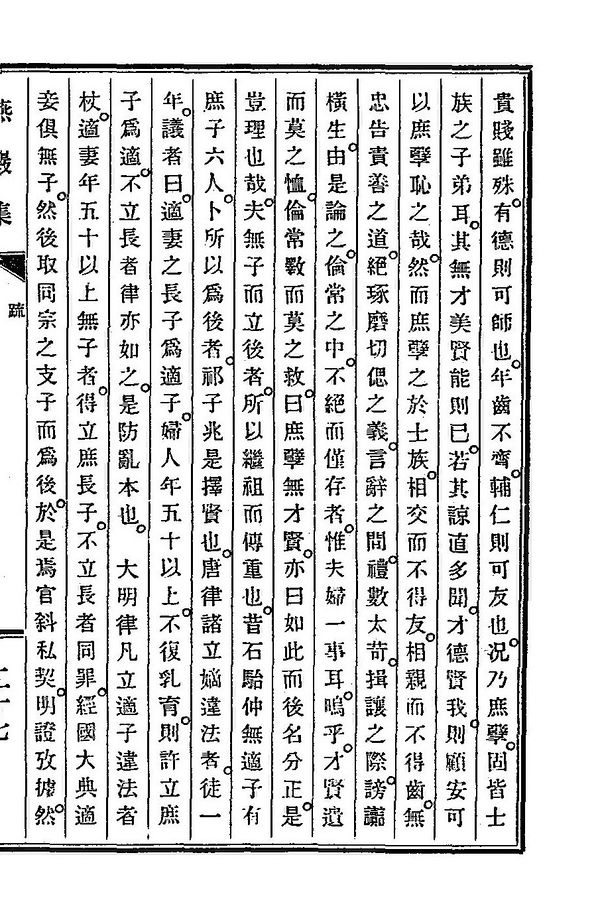 貴賤雖殊。有德則可師也。年齒不齊。輔仁則可友也。況乃庶孼。固皆士
族之子弟耳。其無才美賢能則已。若其諒直多聞。才德賢我。則顧安可
以庶孼恥之哉。然而庶孼之於士族。相交而不得友。相親而不得齒。無
忠告責善之道。絕琢磨切偲之義。言辭之間。禮數太苛。揖讓之際。謗讟
橫生。由是論之。倫常之中。不絕而僅存者。惟夫婦一事耳。嗚乎。才賢遺
而莫之恤。倫常斁而莫之救。曰庶孼無才賢。亦曰如此而後名分正。是
豈理也哉。夫無子而立後者。所以繼祖而傳重也。昔石駘仲無適子有
庶子六人。卜所以爲後者。祁子兆。是擇賢也。唐律諸立嫡違法者。徒一
年。議者曰。適妻之長子爲適子。婦人年五十以上。不復乳育。則許立庶
子爲適。不立長者律亦如之。是防亂本也。 大明律凡立適子違法者
杖。適妻年五十以上無子者。得立庶長子。不立長者同罪。經國大典適
妾俱無子。然後取同宗之支子而爲後。於是焉官斜私契。明證攷據。然
燕巖集
疏
二十七